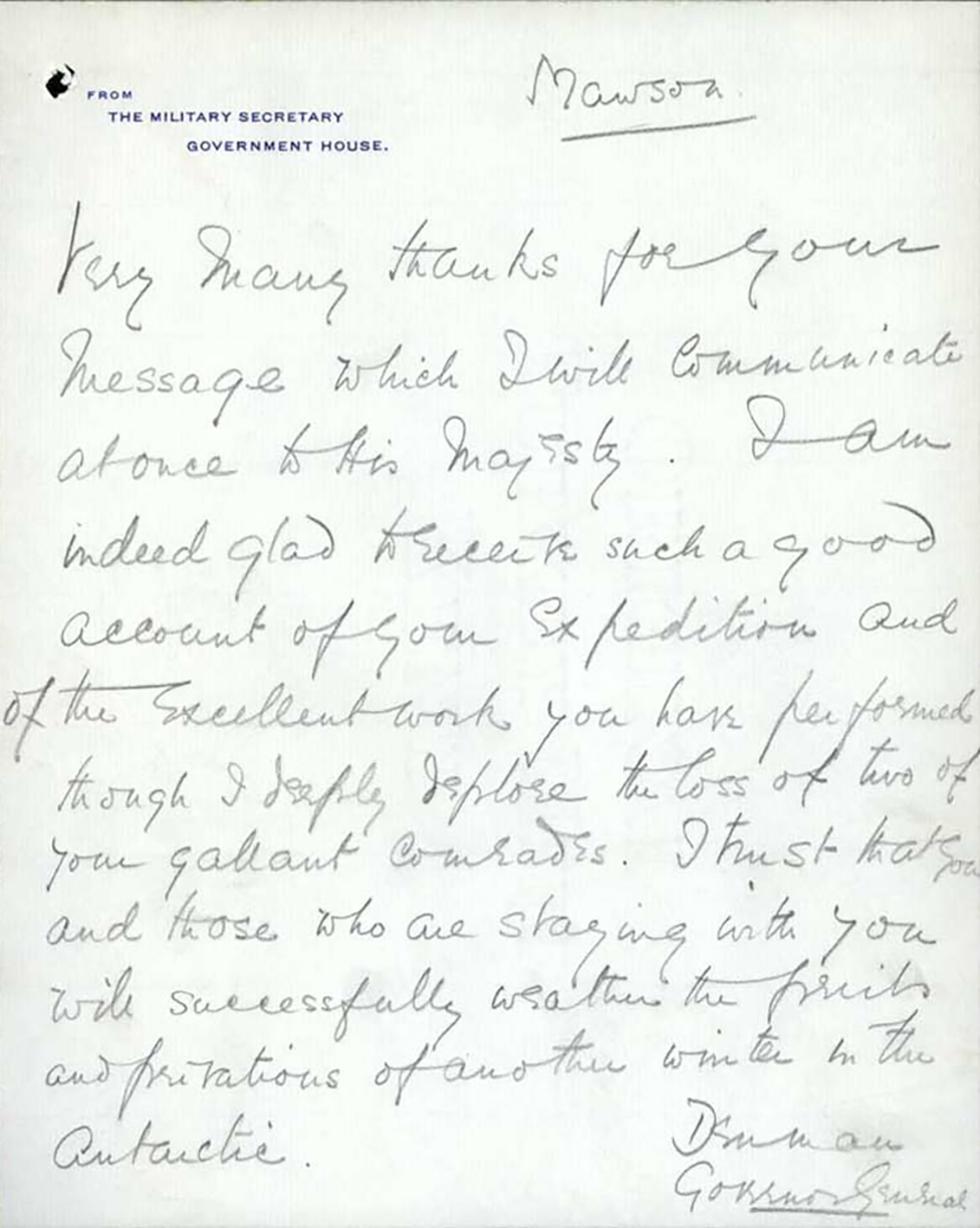 FROM
THE MILITARY SECRETARY
GOVERNMENT HOUSE.
Mawson.
Very Many thanks for your
Message which I will Communicate
at once to His Majesty. I am
indeed glad to receive such a good
account of your Expedition and
of the Excellent work you have performed
though I deeply deplore the loss of two of
your gallant Comrades. I trust that you
and those who are staying with you
will successfully weather the perils
and privations of another winter in the
Antarctic.
Denman
Governor General